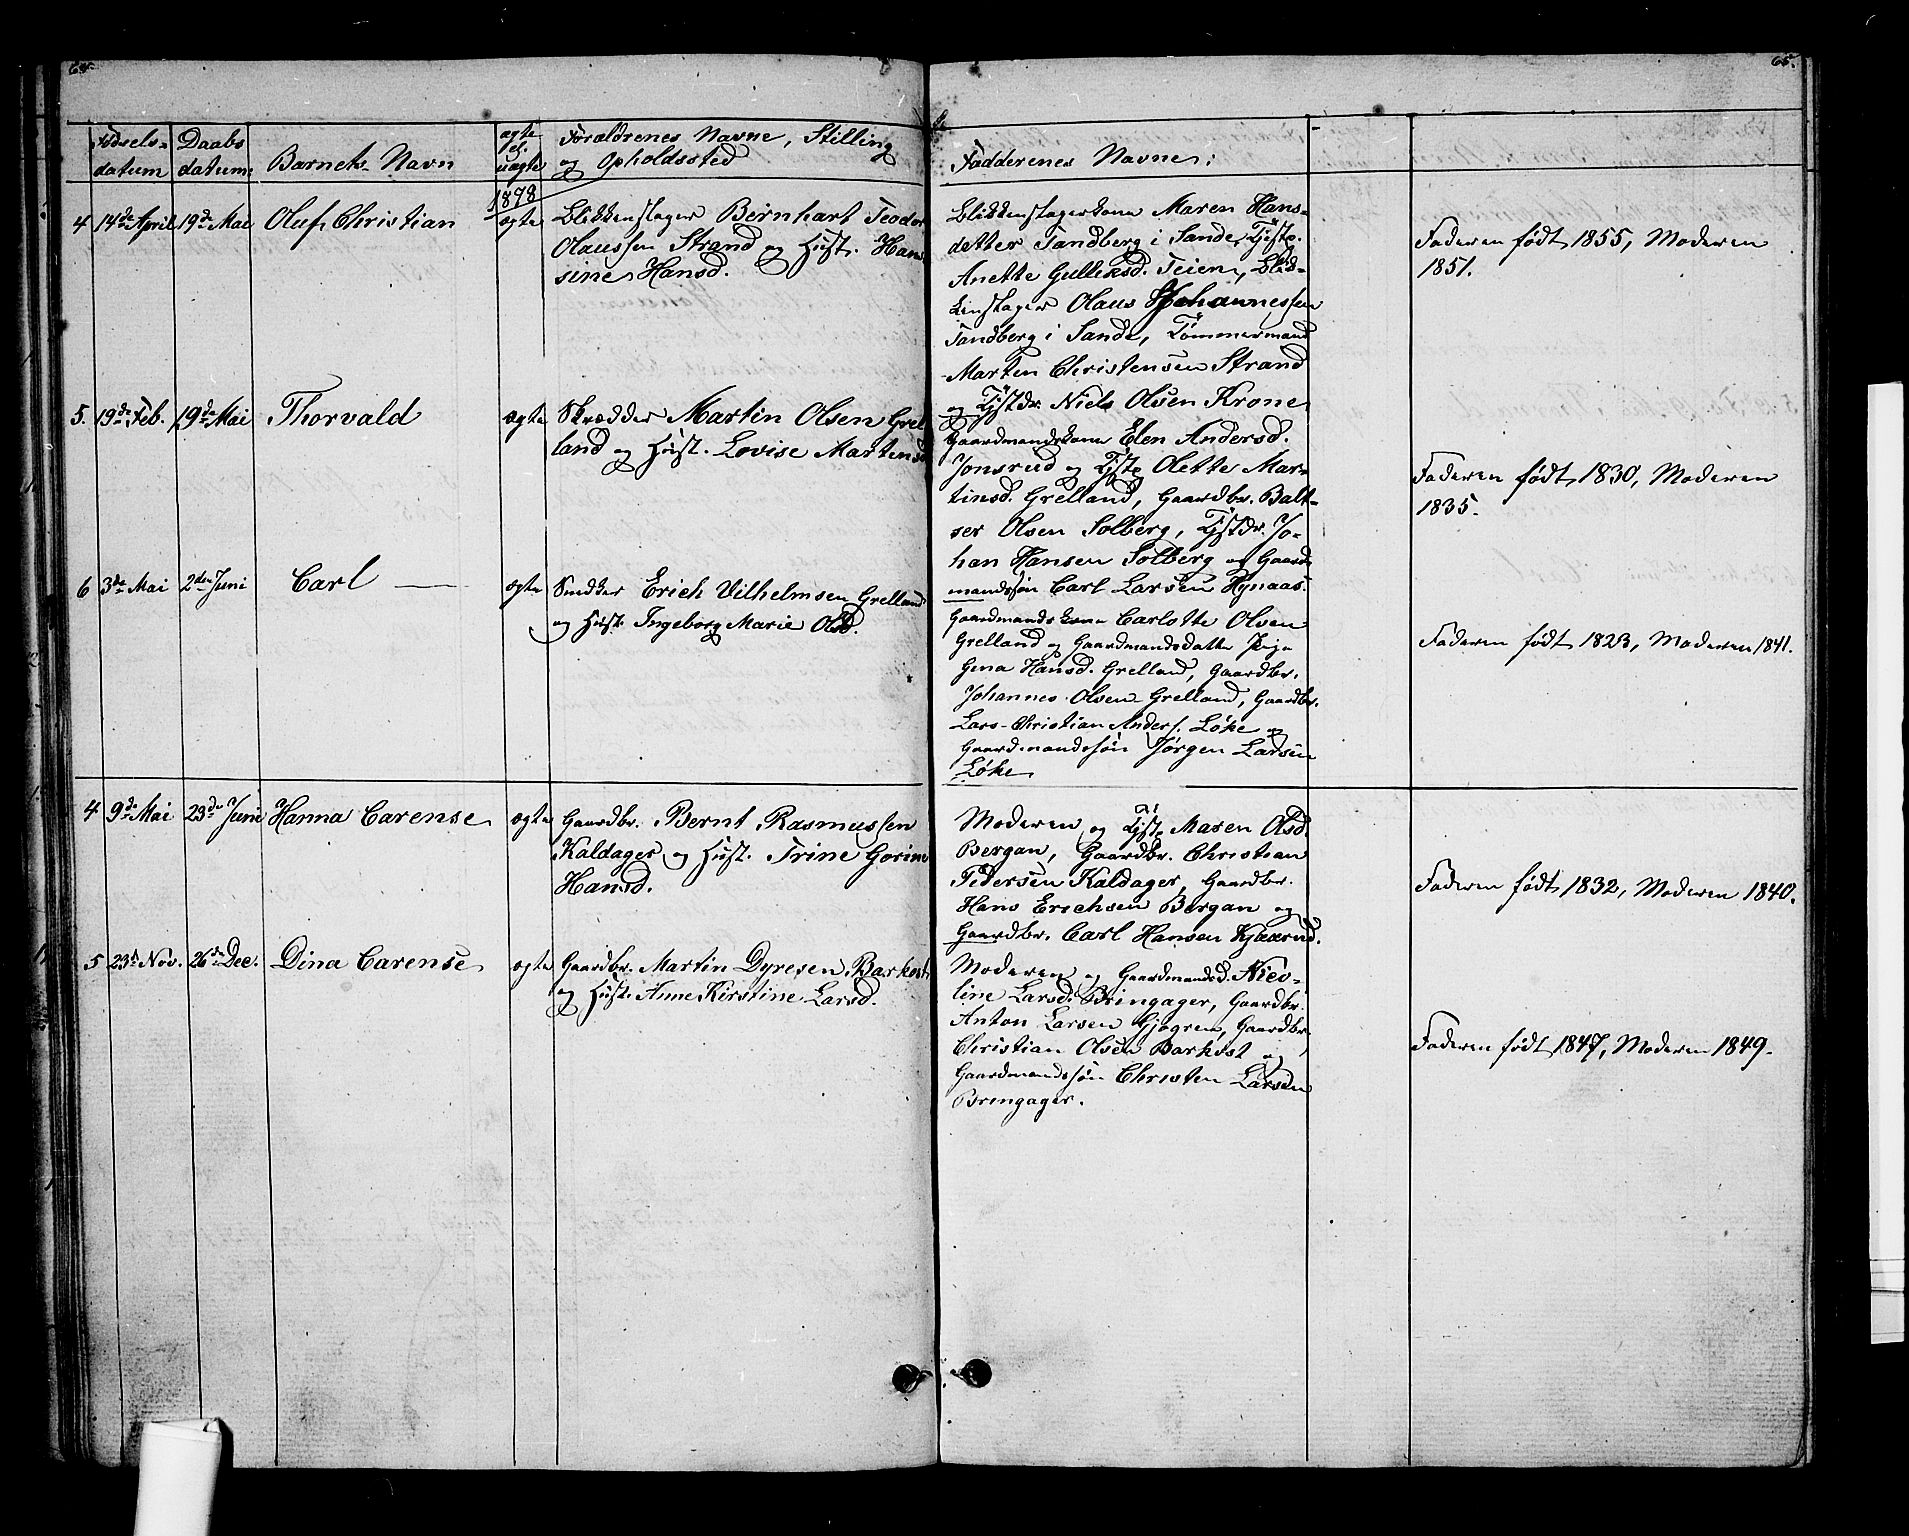 64.
Fødsels-
datum
Daabs
datum:
Barnets Navn
ægte
el.
uægte
Forældrenes Navne, Stilling
og Opholdssted
1878
4 14de April 19de Mai Oluf Christian ægte Blikkenslager Bernhart Teodor
Olaussen Strand og Hust. Han
sine Hansd.
5. 19de Feb. 19de Mai Thorvald ægte Skrædder Martin Olsen Grel
land og Hust. Lovise Martensd
6 3de Mai 2den Juni Carl — ægte Snedker Erich Vilhelmsen Grelland
og Hust. Ingeborg Marie Olsd.
4 9de Mai 23de Juni Hanna Carense ægte Gaardbr. Bernt Rasmussen
Kaldager og Hust. Trine Gorine
Hansd.
5 23d Nov. 26de Dec. Dina Carense ægte Gaardbr. Martin Dyresen Barkost
og Hust. Anne Kirstine Larsd.
65.
Fadderenes Navne:
Blikkenslagerkone Maren Hans-
detter Sandberg i Sande, Tjste.
Anette Gulliksd. Teien, Blik-
kenslager Olaus Johannessen
Sandberg i Sande, Tømmermand
Marten Christensen Strand
og Tjstdr. Niels Olsen Krone
Gaardmandskone Elen Andersd.
Jonsrud og Tjste Olette Mar-
tinsd. Grelland, Gaardbr. Balt-
ser Olsen Solberg, Tjstdr. Jo-
han Hansen Solberg og Gaard-
mandssøn Carl Larsen Hynaas.
Gaardmandskone Carlotte Olsen
Grelland og Gaardmandsdatter
Gina Hansd. Grelland, Gaardbr.
Johannes Olsen Grelland, Gaardbr.
Lars Christian Anders. Løke og
Gaardmandssøn Jørgen Larsen
Løke
Moderen og Tjste Maren Olsd.
Bergan, Gaardbr. Christian
Pedersen Kaldager, Gaardbr.
Hans Erichsen Bergan og
Gaardbr. Carl Hansen Kjaarud.
Moderen og Gaardmandsd. Nico-
line Larsd. Bringager, Gaardbr.
Anton Larsen Gjogren, Gaardbr.
Christian Olsen Barkost og
Gaardmandssøn Christen Larsen
Bringager.
Faderen født 1855, Moderen
1851.
Faderen født 1830, Moderen
1835.
Faderen født 1823, Moderen 1841.
Faderen født 1832, Moderen 1840.
Faderen født 1847, Moderen 1849.